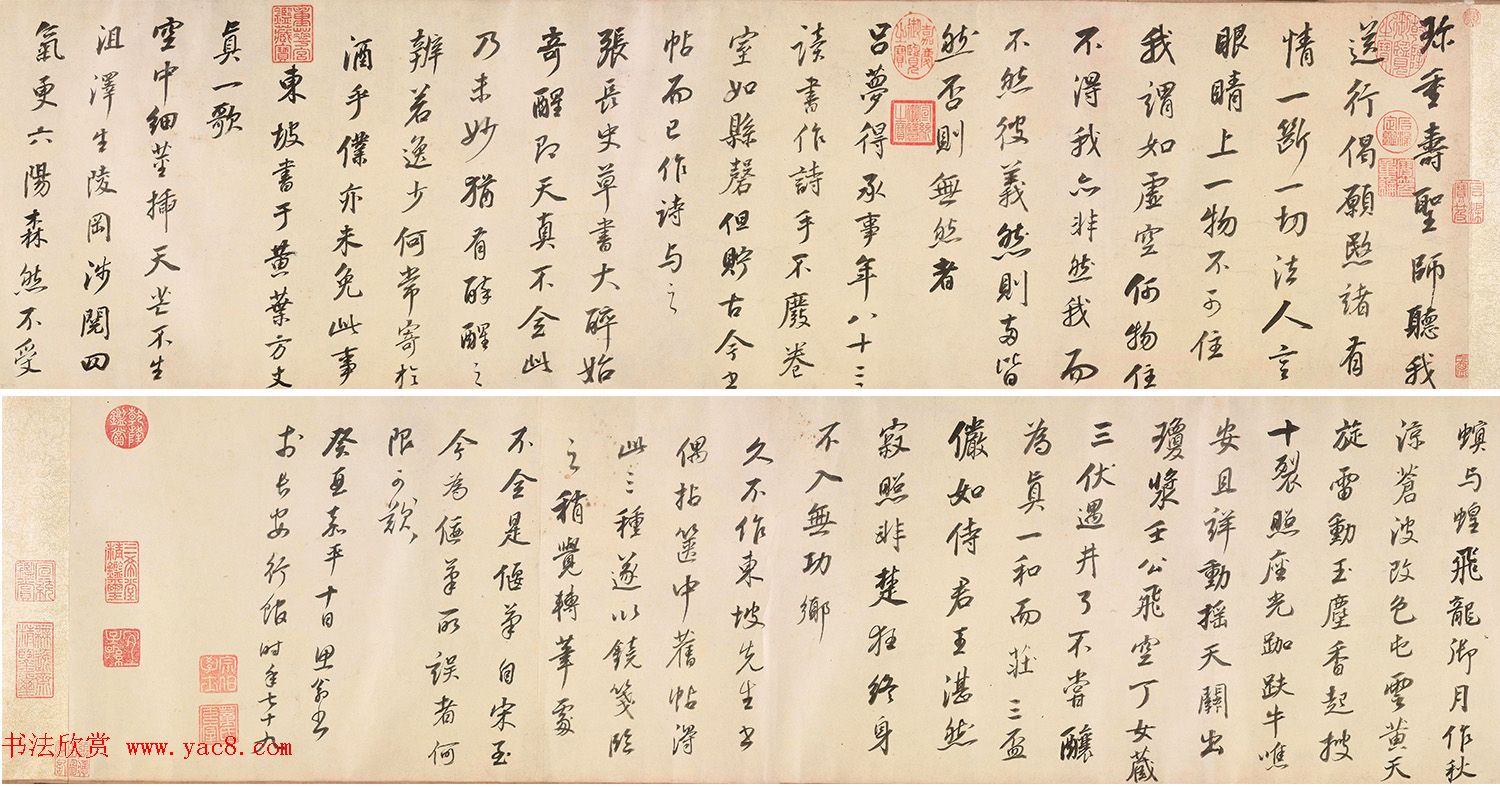 珎重壽聖師聽我
送行偈願愍諸有
情一斷一切法人言
眼睛上一物不可住
我謂如虛空何物住
不得我亦非然我而
不然彼義然則兩皆
然否則無然者
呂夢得承事年八十三
讀書作詩手不廢卷
室如縣磬但貯古今書
帖而已作詩与之
張長史草書大醉始
奇醒即天真不全此
乃未妙猶有醉醒之
辨若逸少何常寄於
酒乎僕亦未免此事
東坡書于黃葉方丈
真一歌
空中細莖插天芒不生
沮澤生陵岡涉閱四
氣更六陽森然不受
嘉慶御覽之寶
螟与蝗飛龍御月作秋
涼蒼波改色屯雲黃天
旋雷動玉塵香起搜
十裂照座光跏趺牛噍
安且詳動搖天關出
瓊漿壬公飛空丁女藏
三伏遇井了不嘗釀
為真一和而莊三盃
儼如侍君王湛然
寂照非楚狂終身
不入無功鄉
久不作東坡先生書
偶拈篋中舊帖得
此三種遂以鏡箋臨
之稍覺轉筆處
不全是偃筆自宋至
今為偃筆所誤者何
限可歎
癸酉嘉平十日思翁書
於長安行館時年七十九
乾隆鑑賞
三希堂精鑑璽
宜子孫
书法欣赏 www.yac8.com